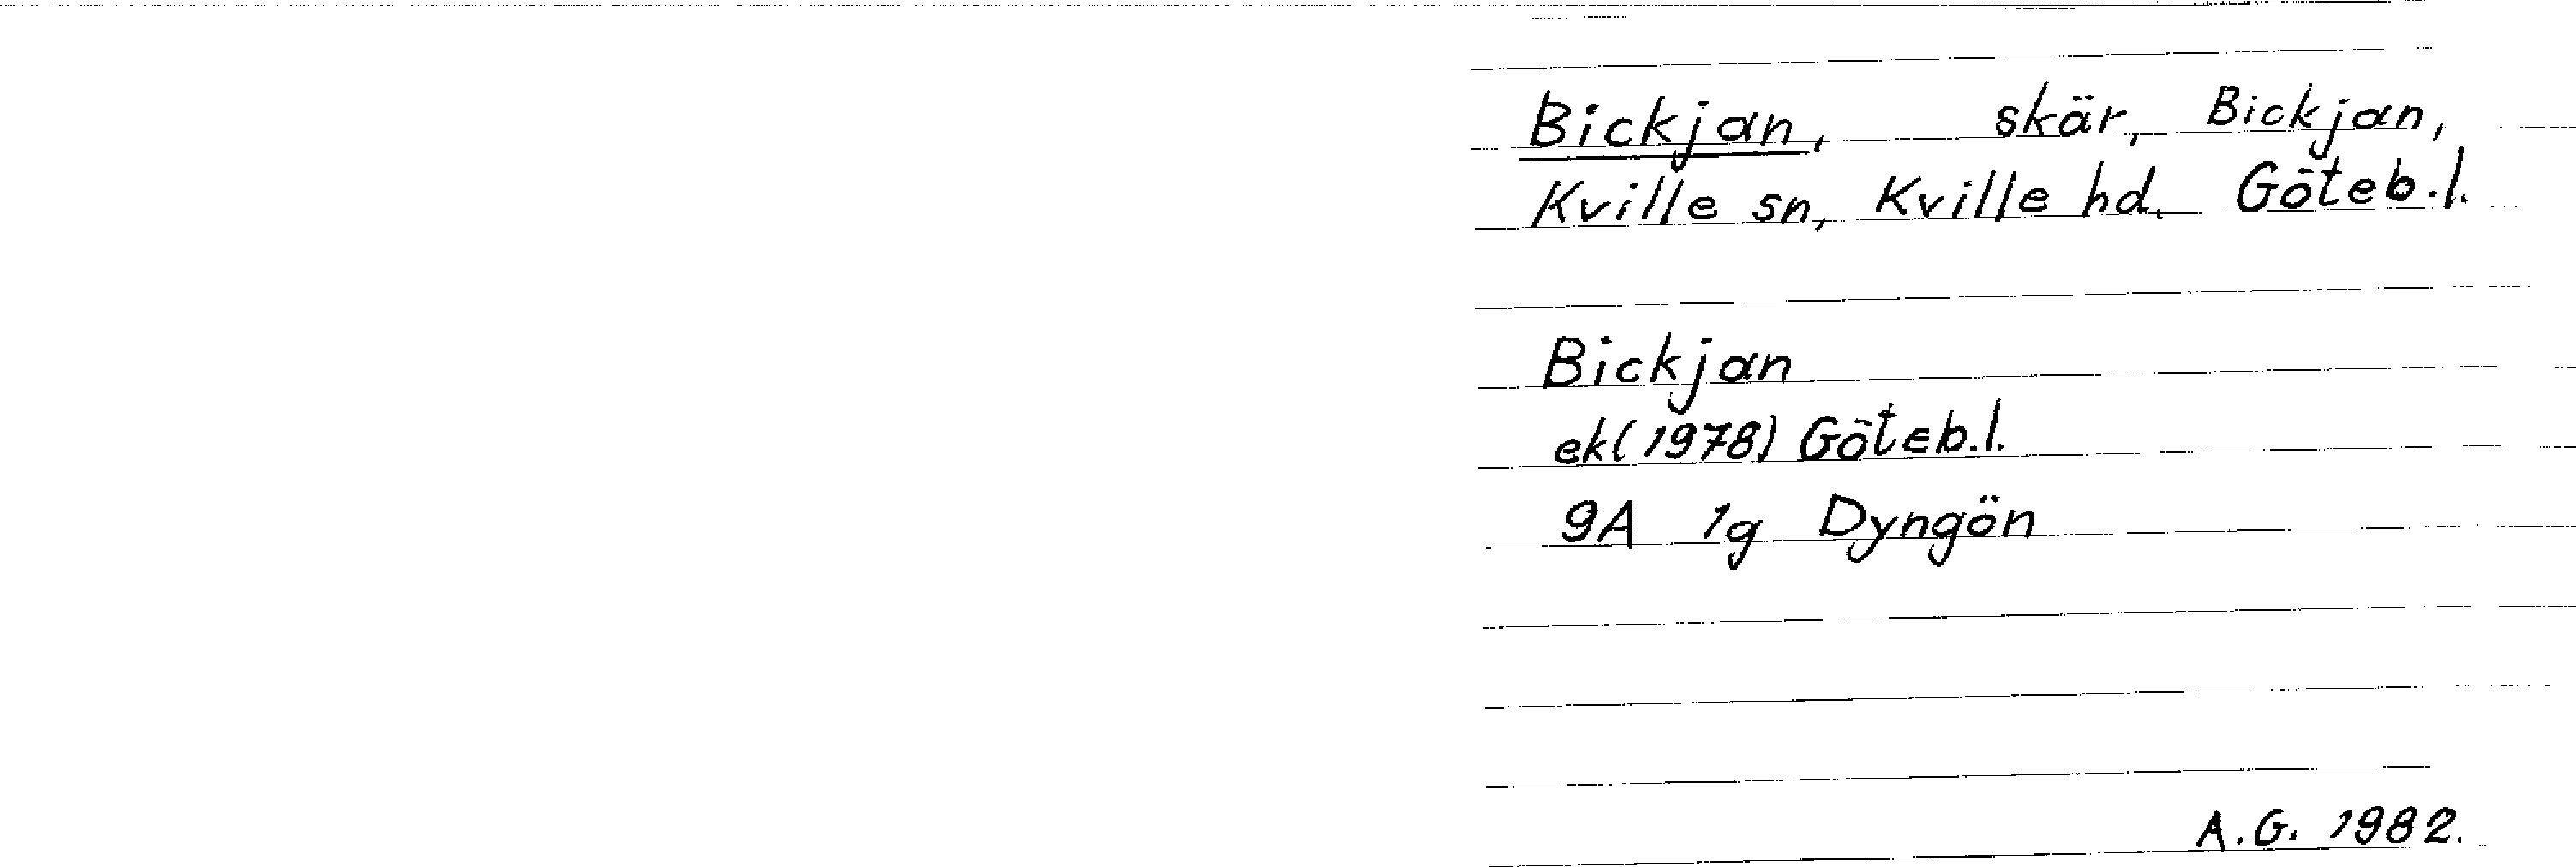 Bickjan, skär, Bickjan,
Kville sn, Kville hd. Göteb.l.
Bickjan
ek(1978) Göteb.l.
9A 1g Dyngön
A.G. 1982.